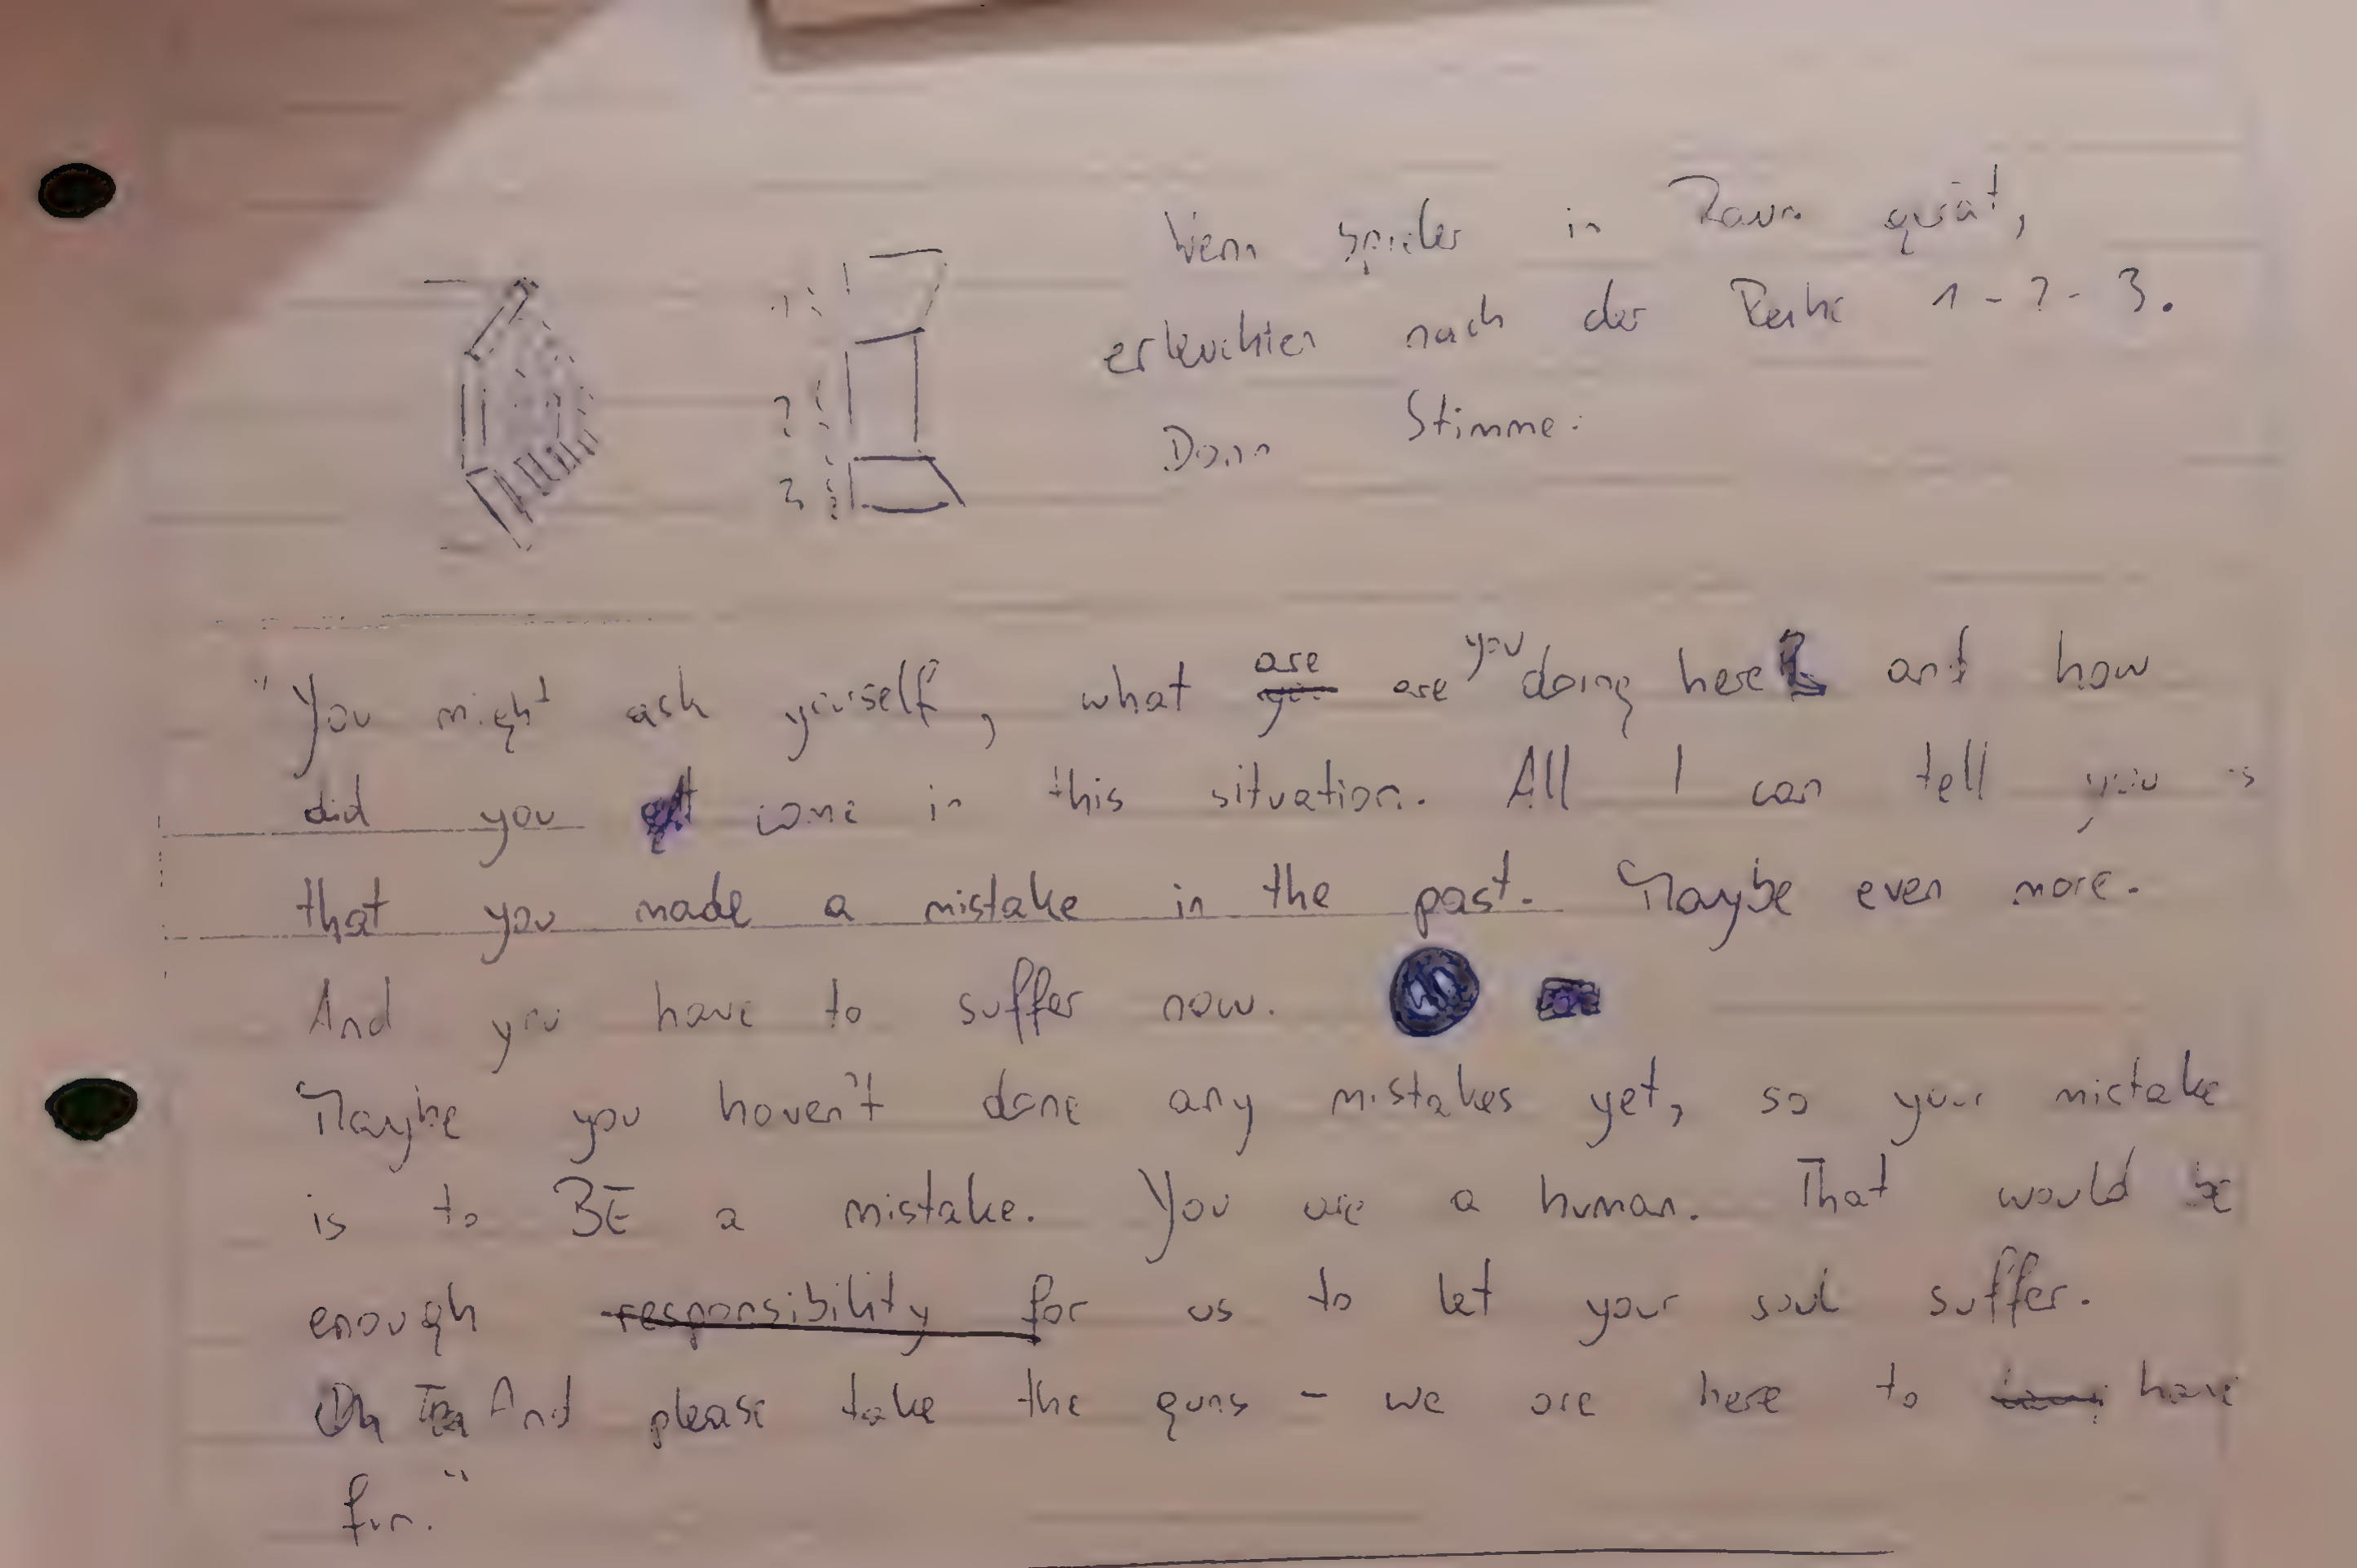 Wenn Spieler in Raum gerät,
erleuchten nach der Reihe 1 - 2 - 3.
Dann Stimme:
1
2
3
"You might ask yourself, what are are you doing here and how
did you come in this situation. All I can tell you is
that you made a mistake in the past. Maybe even more.
And you have to suffer now.
Maybe you haven't done any mistakes yet, so your mistake
is to BE a mistake. You are a human. That would be
enough responsibility for us to let your soul suffer.
And please take the guns - we are here to have
fun."